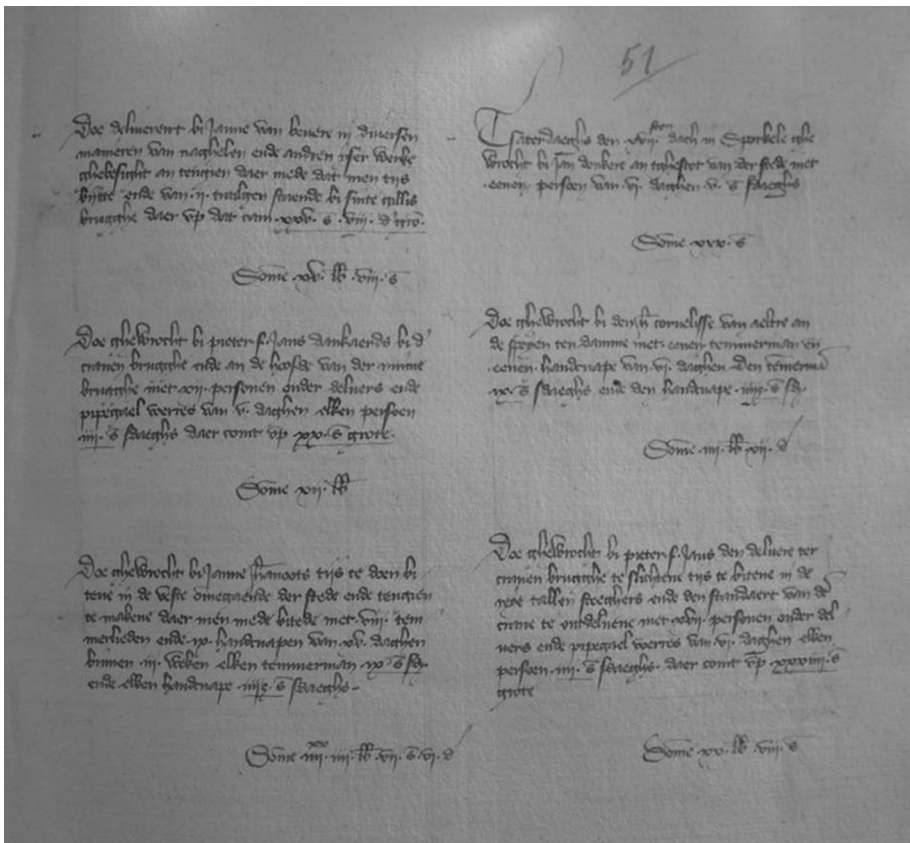 Doe delivererit bi Janne van bevere in diversen
manieren van naghelen ende andren yser werke
ghebesicht an tengien daer mede dat men tijs
bitte ende van .ii. tralgen staende bi sinte gillis
brugghe daer up dat cam .xxv. s. viii. d gro.
Some xv. lb .viii. s
Doe ghewrocht bi pieter f. Jans dankaerds bi d'
cranen brugghe ende an de hofde van der
brugghe met .xii. personen onder delvers ende
pipegael voerres van .v. daghen elken persoen
.iiii. s sdaeghs daer comt up xx. s grote.
Some xii. lb
Doe ghewrocht bi Janne tijs te doen bi
tene in de veste omegaende der stede ende tengien
te makene daer men mede bitede met .viii. tem
merlieden ende .ix. handcnapen van .xv. daghen
binnen .iii. weken elken temmerman .ix. s sd.
ende elken handcnape .iiii. s sdaeghs.
Some .iiii. xx .iiii. lb .vii. s .vi. d
51
Tsaterdaeghs den xvii sten dach in Sporkele ghe
wrocht bi Jan donkere an tghesteet van der stede met
.eenen. persoen van .vi. daghen .v. s sdaeghs
Some xxx. s
Doe ghewrocht bi cornelisse van aeltre an
de speyen ten damme met .eenen temmerman en
.eenen. handcnape van .vi. daghen. Den temerma
.ix. s sdaeghs ende den handcnape .iiii. s sd.
Some .iiii. lb .xii. d
Doe ghewrocht bi pieter f. Jans den delvere ter
cranen brugghe te slichtene tijs te bitene in de
steeghers ende den standaert van de
crane te utdelvene met .xvii. personen onder del
vers ende pipegael voerres van .vi. daghen elken
persoen .iiii. s sdaeghs. daer comt up xxxiiii. s
grote
Some xx. lb .viii. s